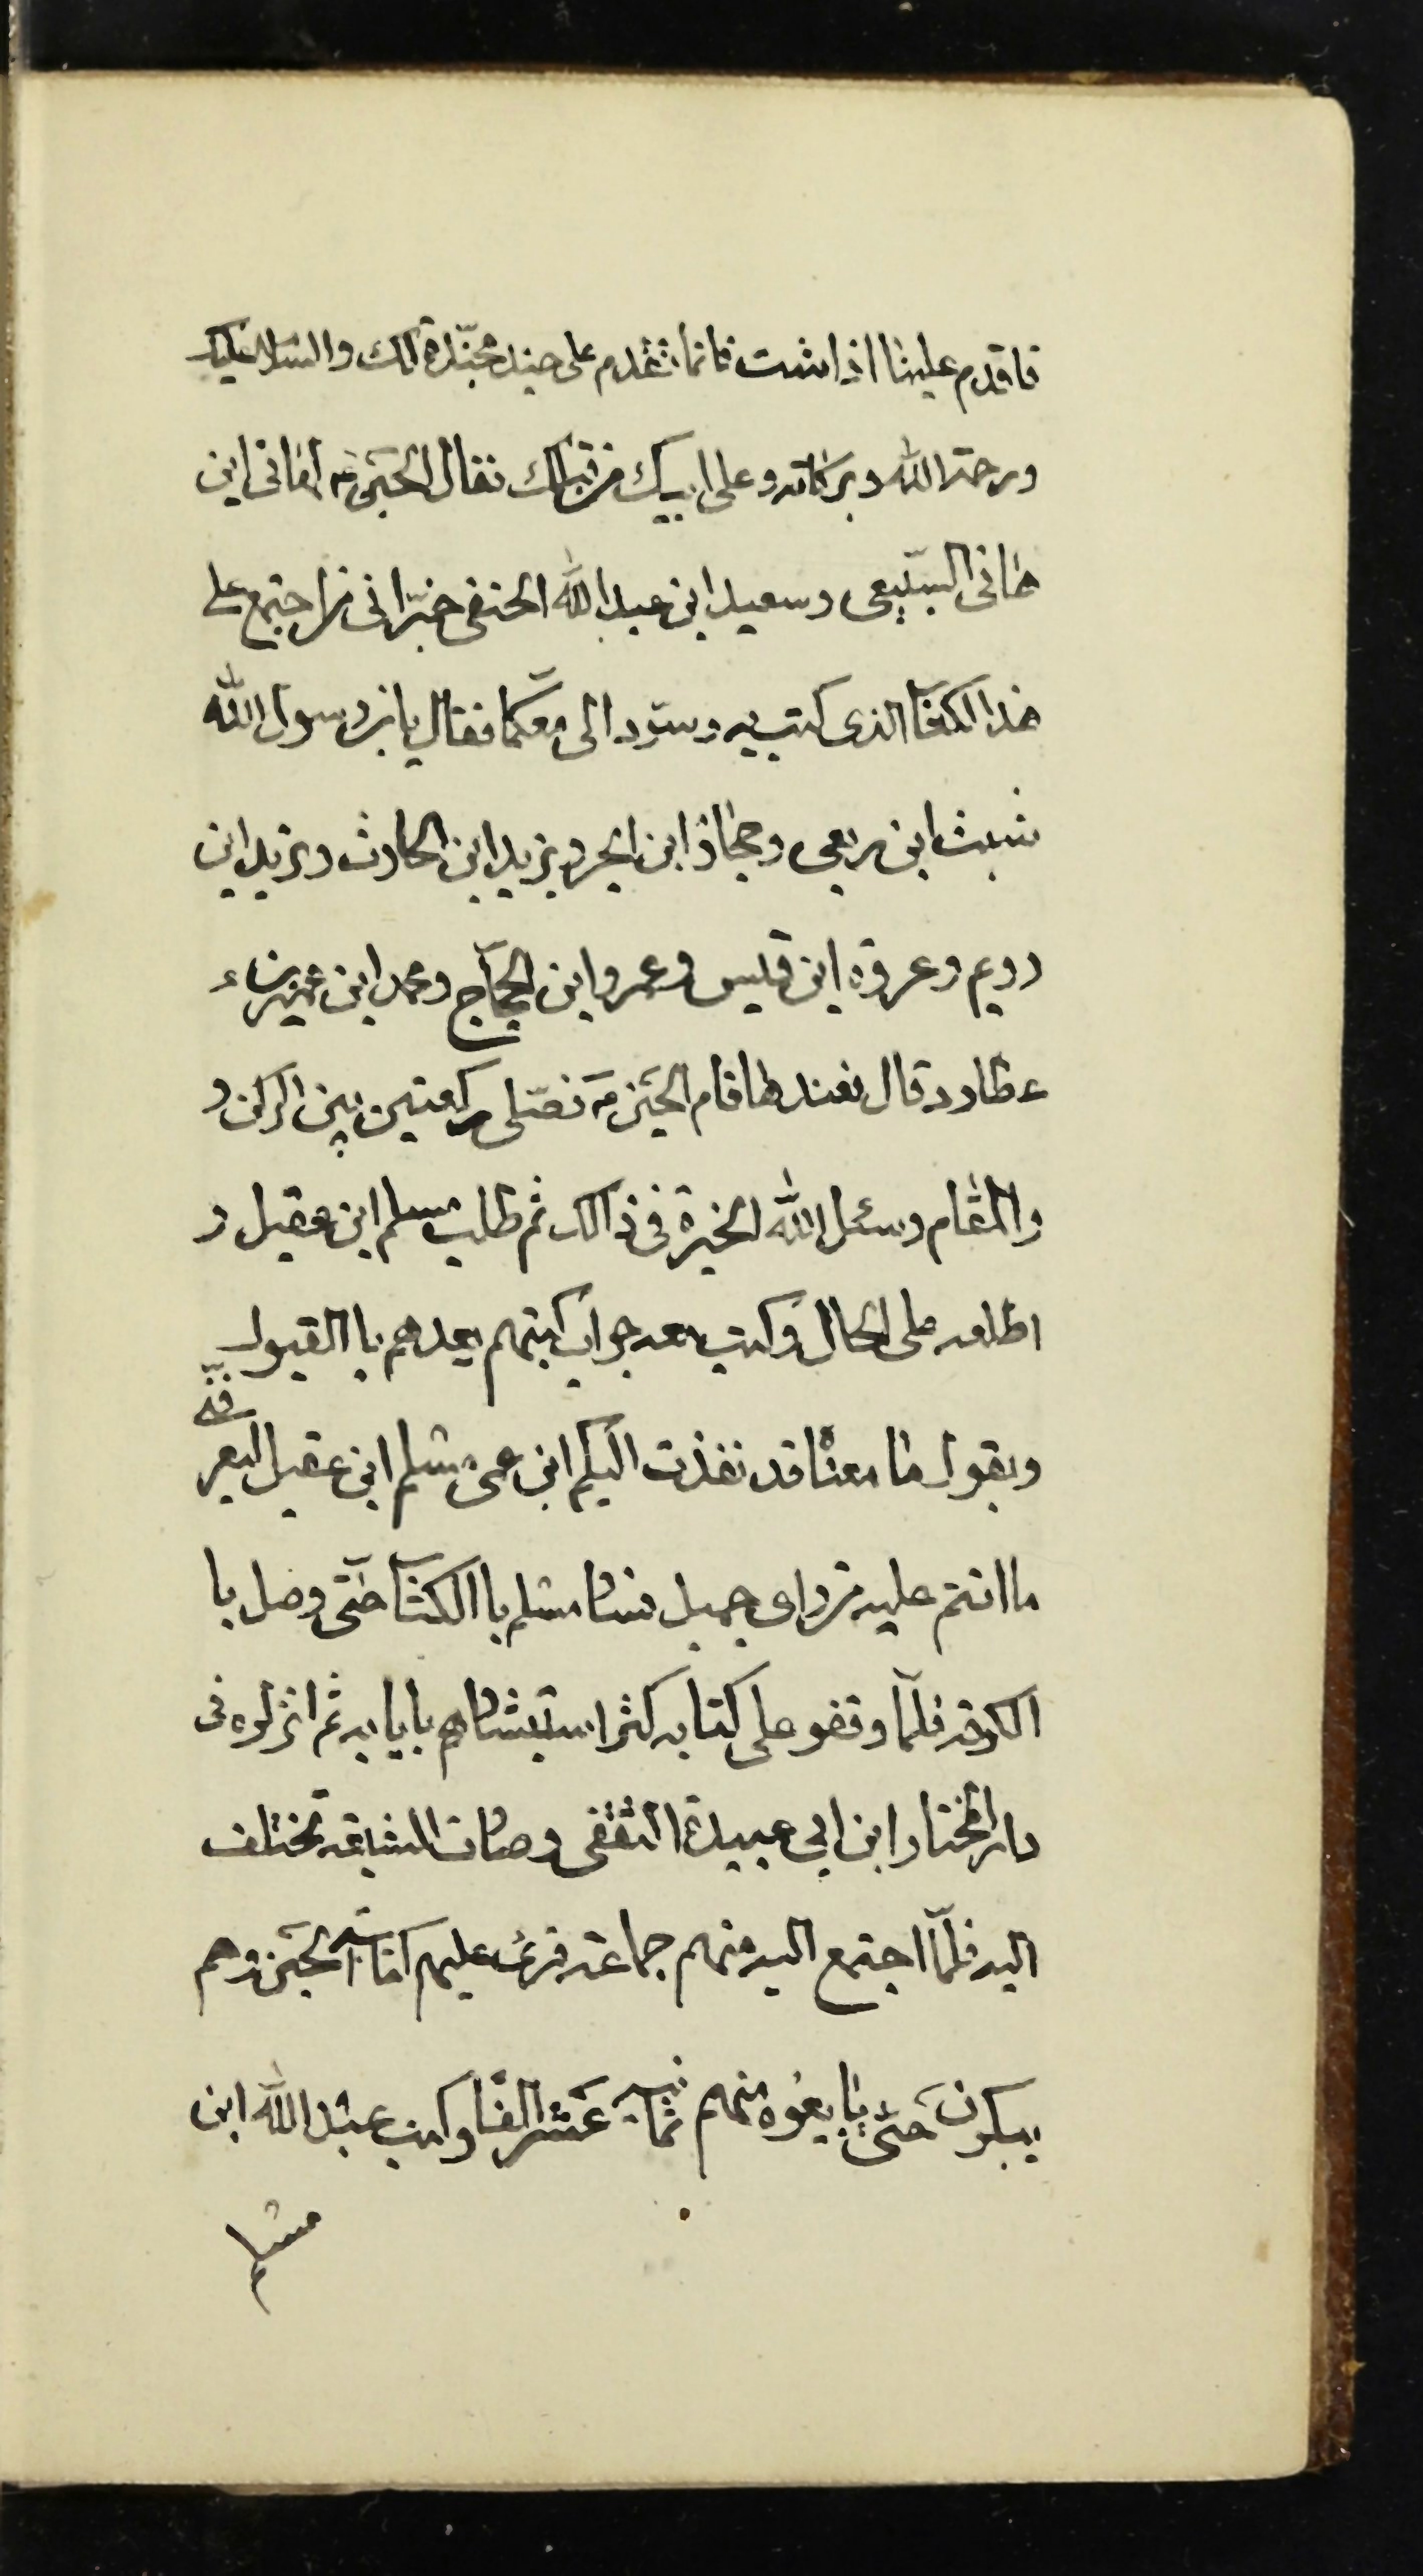 فاقدم علینا اذا شئت فانما تقدم علی جند مجنّدة لك والسّلام علیك
ورحمة الله وبرکاته وعلی ابیك من قبلك فقال الحسین ع لهانی ابن
هانی السّبیعی وسعید ابن عبدالله الحنفی خبّرانی من اجتمع علی
هذا الکتاب الذی کتب به وسوّد الی معکما فقال یابن رسول الله
شبث ابن ربعی وحجاز ابن ابجر ویزید ابن الحارث ویزید ابن
رویم وعروة ابن قیس وعمرو ابن الحجّاج ومحمد ابن عمیر ابن
عطارد قال فعندها قام الحسین ع فصّلی رکعتین بین الرکن و
والمقام وسئل الله الخیرة فی ذالك ثم طلب مسلم ابن عقیل و
اطلعه علی الحال وکتب معه جواب کتبهم یعدهم با القبول
ویقول ما معناه قد نفذت الیکم ابن عمی مسلم ابن عقیل لیعر
فنّی
ما انتم علیه من رای جمیل فسار مسلم با الکتاب حتّی وصل با
الکوفه فلمّا وقفو علی کتابه کثر استبشارهم بایابه ثم انزلوه فی
دار المختار ابن ابی عبیدة الثقفی وصارت الشیعة تختلف
الیه فلمّا اجتمع الیه منهم جماعة قرء علیهم کتاب الحسین وهم
یبکون حتّی بایعوه منهم ثمانیه عشر الفا وکتب عبدالله ابن
مسلم